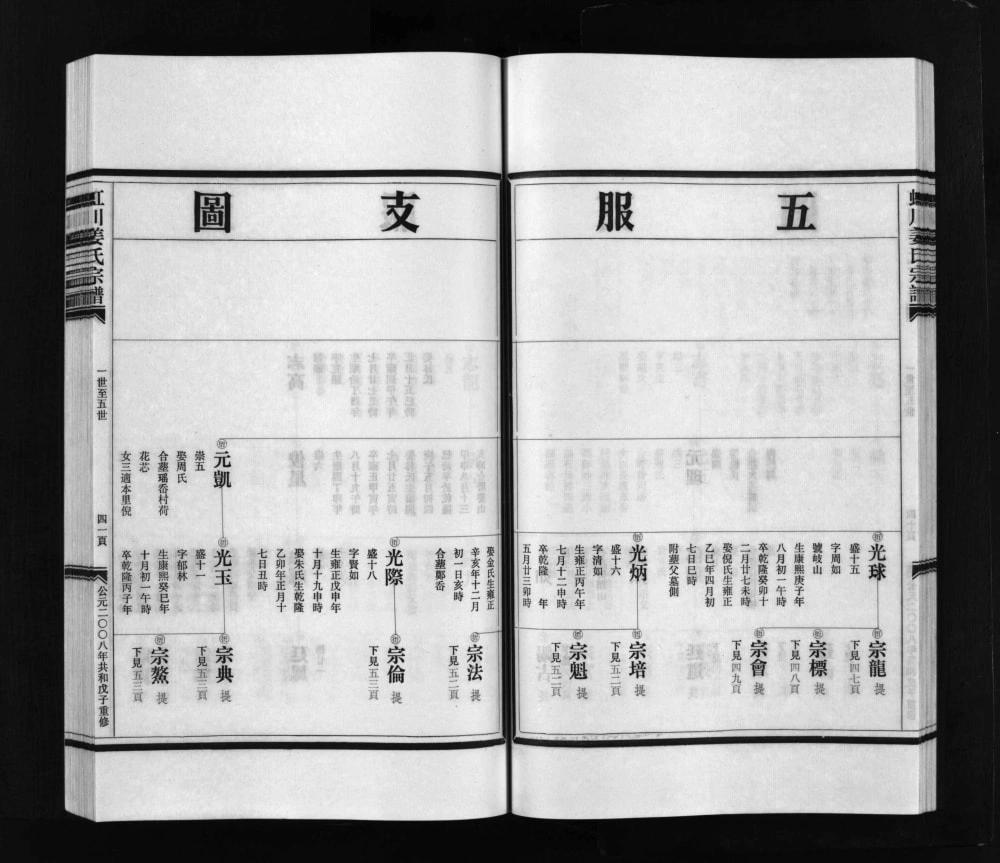 五服
支圖
虹川姜氏宗譜
光球
盛十五
字周如
號岐山
生康熙庚子年
八月初一午時
卒乾隆癸卯十
二月廿七未時
娶倪氏生雍正
乙巳年四月初
七日巳時
附塟父墓側
宗龍 提
下見四七頁
宗標 提
下見四八頁
宗會 提
下見四九頁
光炳
盛十六
字清如
生雍正丙午年
七月十二申時
卒乾隆 年
五月廿三卯時
宗培 提
下見五二頁
宗魁 提
下見五二頁
娶金氏生雍正
辛亥年十二月
初一日亥時
合塟鄭岙
宗法 提
下見五二頁
光際
盛十八
字賢如
生雍正戊申年
十月十九申時
娶朱氏生乾隆
乙卯年正月十
七日丑時
宗倫 提
下見五三頁
元凱
崇五
娶周氏
合塟瑤岙村荷
花芯
女三適本里倪
光玉
盛十一
字郁林
生康熙癸巳年
十月初一午時
卒乾隆丙子年
宗典 提
下見五三頁
宗鰲 提
下見五三頁
虹川姜氏宗譜
一世至五世
四一頁
公元二〇〇八年共和戊子重修